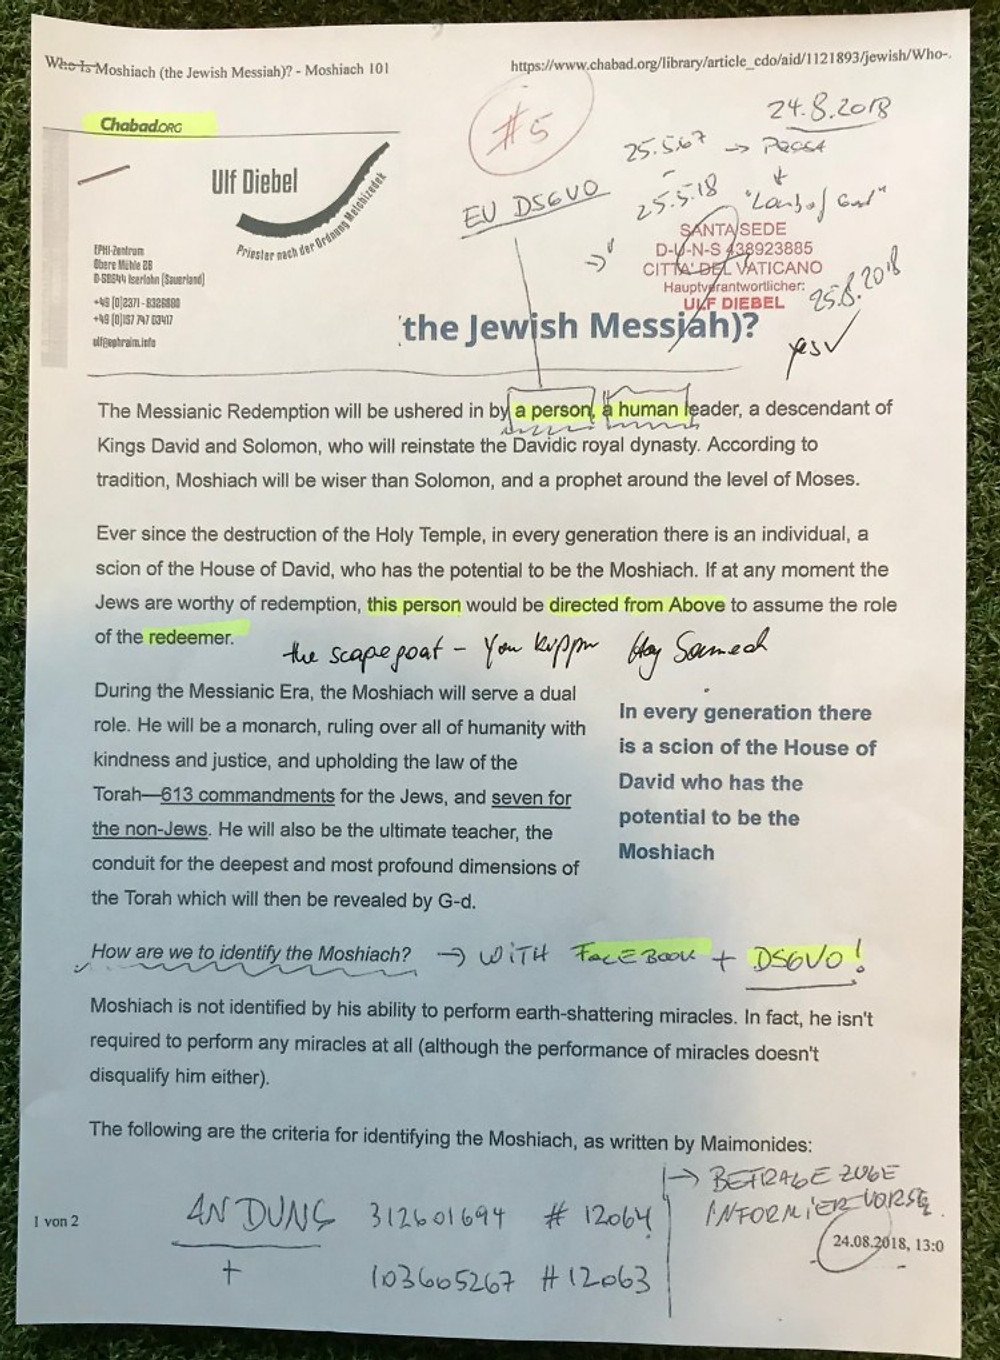 Who Is Moshiach (the Jewish Messiah)? - Moshiach 101
https://www.chabad.org/library/article_cdo/aid/1121893/jewish/Who-.
Chabad.ORG
#5
24.8.2018
25.5.67 →
25.5.18
EU DSGVO
Ulf Diebel
Priester nach der Ordnung Melchizedek
EPHI-Zentrum
Obere Mühle 28
D-58644 Iserlohn (Sauerland)
+49 (0)2371-8328880
+49 (0)157 747 03417
ulf@ephraim.info
SANTA SEDE
D-U-N-S 438923885
CITTA' DEL VATICANO
Hauptverantwortlicher:
ULF DIEBEL
25.8.2018
yes ✓
the Jewish Messiah)?
The Messianic Redemption will be ushered in by a person, a human leader, a descendant of
Kings David and Solomon, who will reinstate the Davidic royal dynasty. According to
tradition, Moshiach will be wiser than Solomon, and a prophet around the level of Moses.
Ever since the destruction of the Holy Temple, in every generation there is an individual, a
scion of the House of David, who has the potential to be the Moshiach. If at any moment the
Jews are worthy of redemption, this person would be directed from Above to assume the role
of the redeemer.
the scapegoat - Yom Kippur
During the Messianic Era, the Moshiach will serve a dual
role. He will be a monarch, ruling over all of humanity with
kindness and justice, and upholding the law of the
Torah—613 commandments for the Jews, and seven for
the non-Jews. He will also be the ultimate teacher, the
conduit for the deepest and most profound dimensions of
the Torah which will then be revealed by G-d.
In every generation there
is a scion of the House of
David who has the
potential to be the
Moshiach
How are we to identify the Moshiach? → WITH FACEBOOK + DSGVO!
Moshiach is not identified by his ability to perform earth-shattering miracles. In fact, he isn't
required to perform any miracles at all (although the performance of miracles doesn't
disqualify him either).
The following are the criteria for identifying the Moshiach, as written by Maimonides:
1 von 2
312601694 # 12064
+ 103605267 # 12063
24.08.2018, 13:0